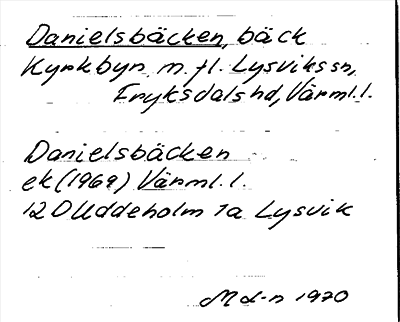 Danielsbäcken, bäck
Kyrkbyn m. fl. Lysvikssn,
Fryksdalshd, Värml.l.
Danielsbäcken
ek (1969) Värml.l.
12 D Uddeholm 1a Lysvik
1970